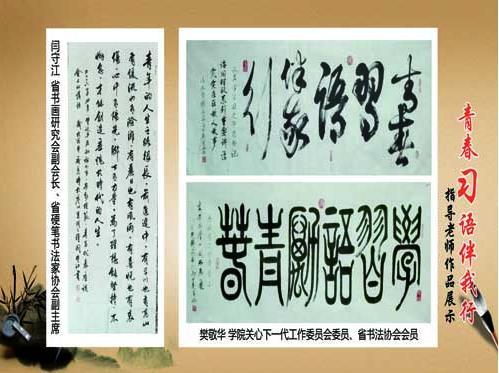 青春习语伴我行
指导老师作品展示
青春
習語
伴我
行
學習語勵青春
樊敬华 学院关心下一代工作委员会委员、省书法协会会员
青年的人生之路很长，前进途中，有平川也有高山，
有缓流也有险滩，有丽日也有风雨，有喜悦也有哀
伤。心中有阳光，脚下有力量，为了理想能坚持、不
懈怠，才能创造无愧于时代的人生。
闫守江 省书画研究会副会长、省硬笔书法家协会副主席